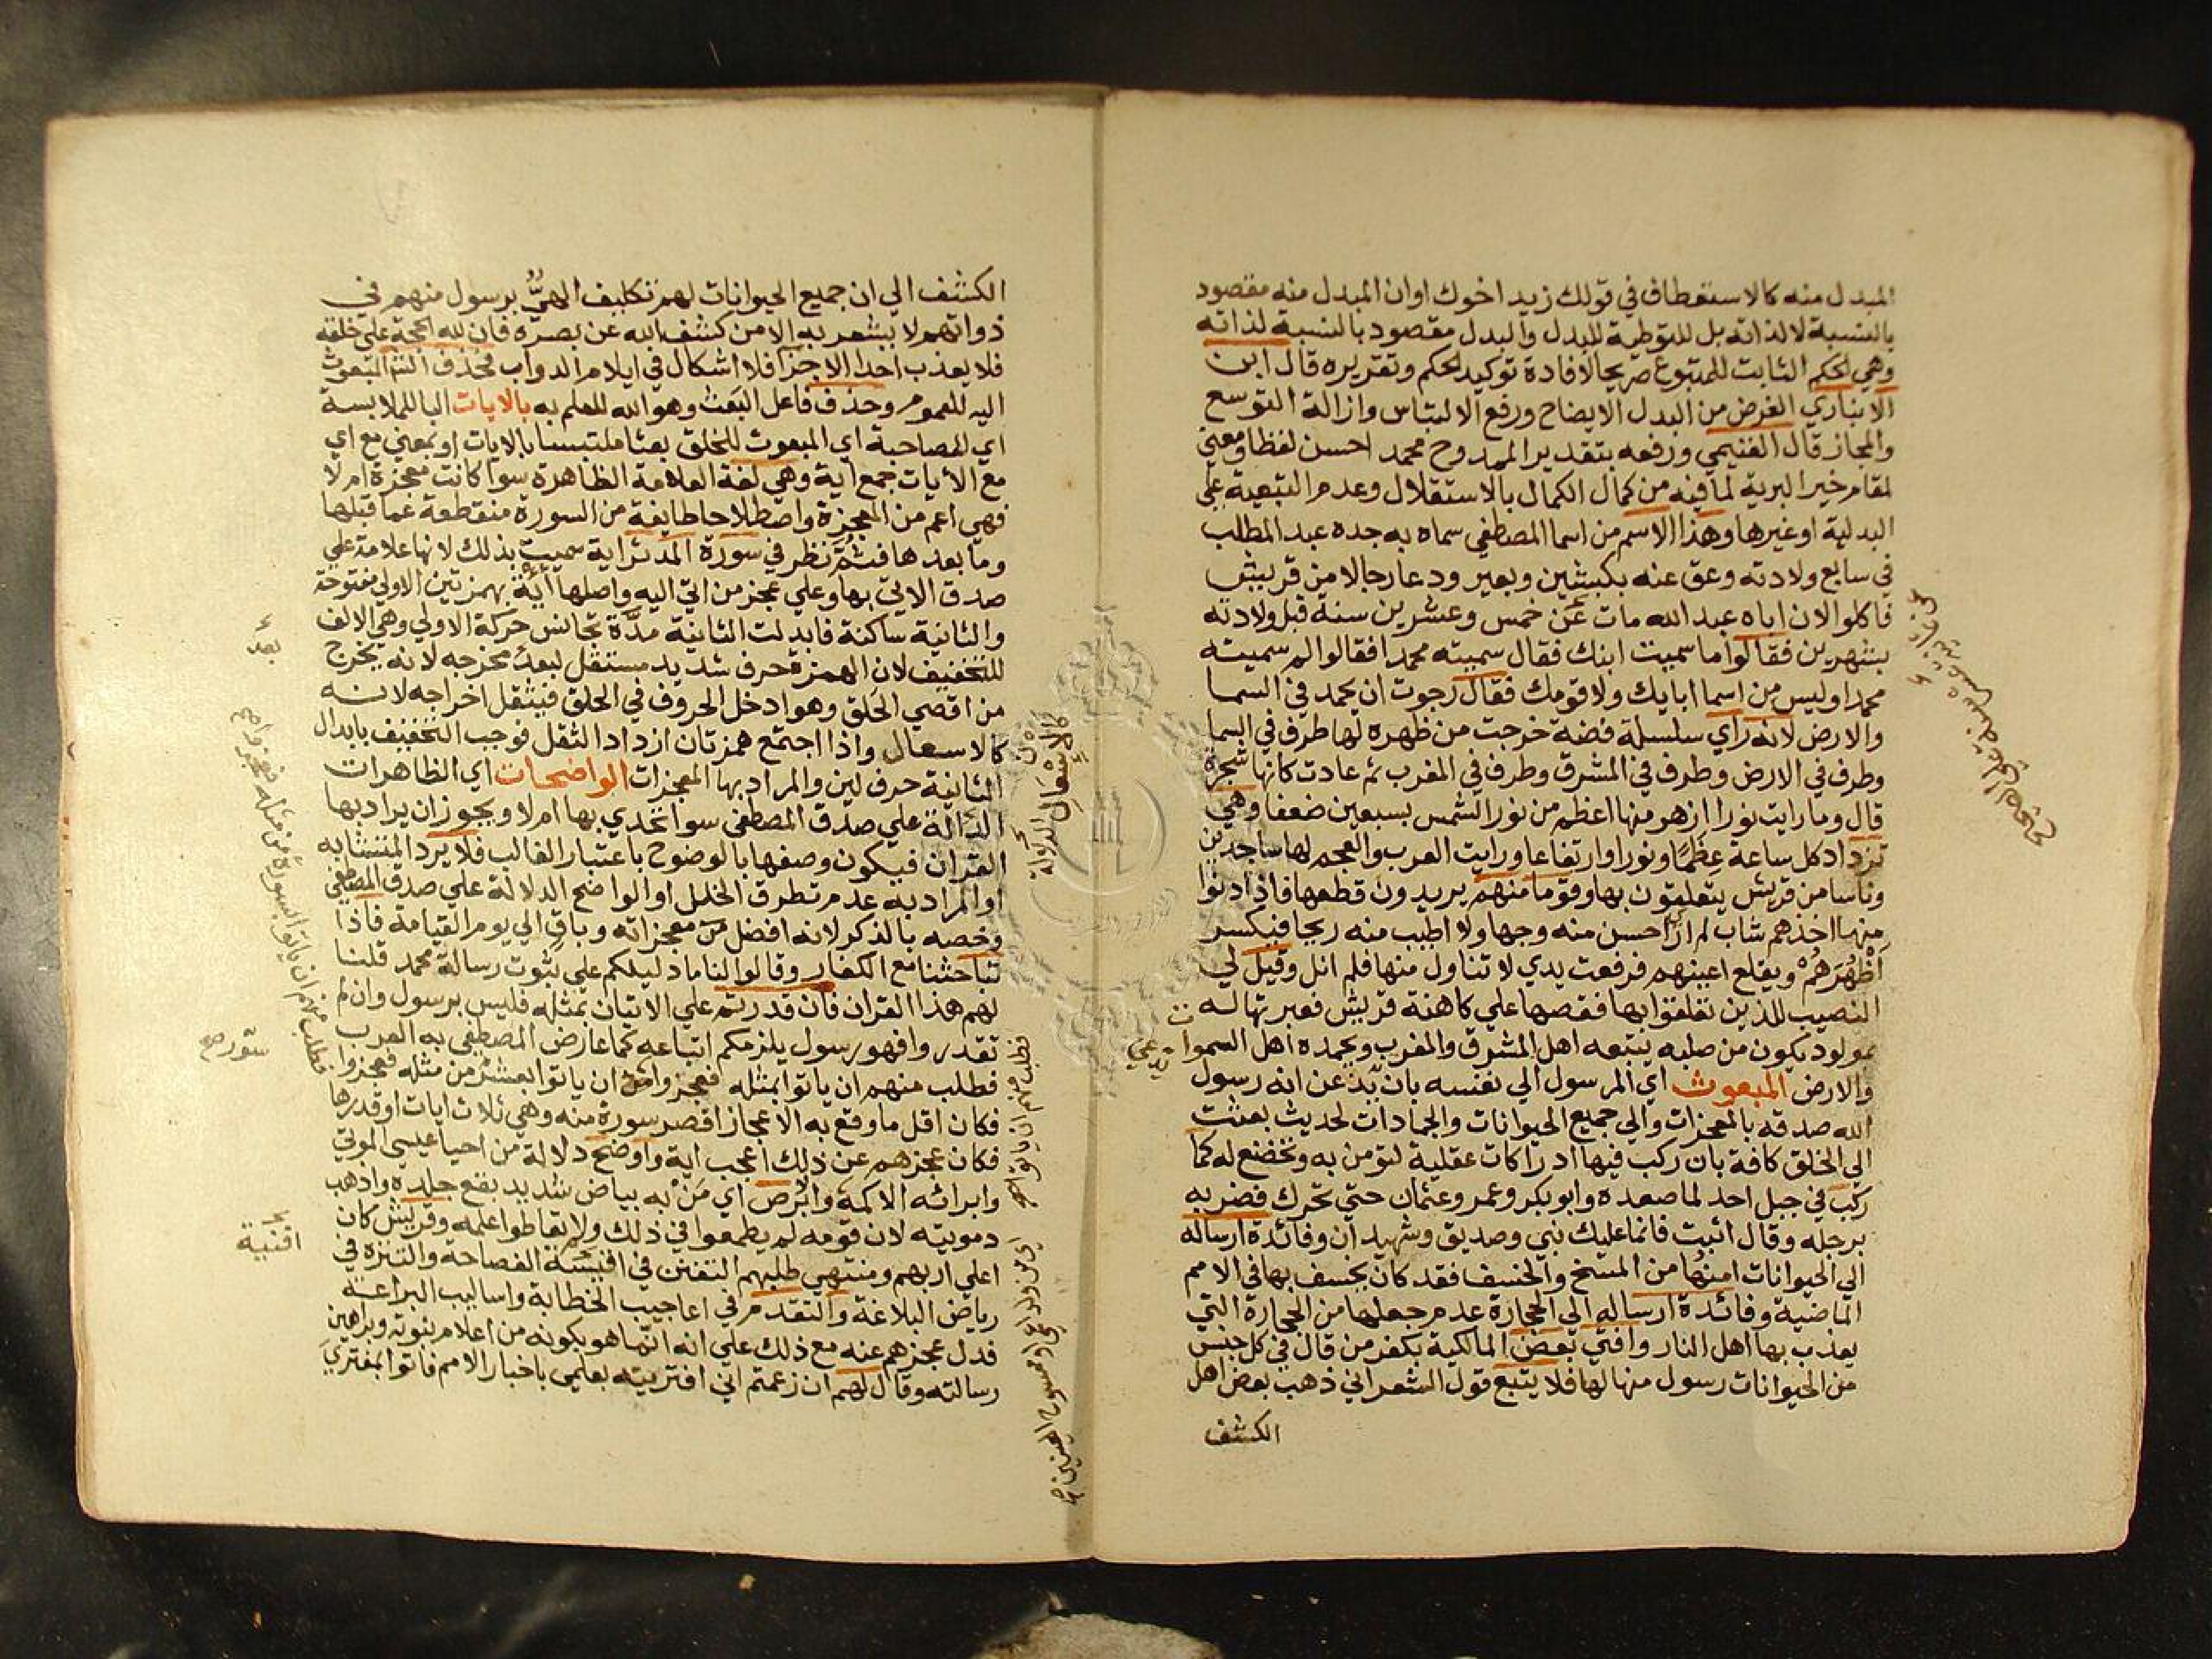 المبدل منه كالاستعطاف في قولك زيد اخوك اوان المبدل منه مقصود
بالنسبة لا لذاته بل للتوطية للبدل والبدل مقصود بالنسبة لذاته
وهي لحكم الثابت للمتبوع صريحا لافادة توكيد الحكم وتقريره قال ابن
الانباري الغرض من البدل الايضاح ورفع الالتباس وازالة التوسع
والمجاز قال الغنيمي ورفعه بتقدير الممدوح محمد احسن لفظا ومعني
لمقام خير البرية لما فيه من كمال الكمال بالاستقلال وعدم التبعية علي
البدلية او غيرها وهذا الاسم من اسما المصطفي سماه به جده عبد المطلب
في سابع ولادته وعق عنه بكبشين وبعير ودعا رجالا من قريش
فاكلوا لان اباه عبد الله مات عن خمس وعشرين سنة قبل ولادته
بشهرين فقالوا ما سميت ابنك فقال سميته محمدا فقالوا لم سميته
محمدا وليس من اسما ابايك ولا قومك فقال رجوت ان يحمد في السما
والارض لانه راي سلسلة فضة خرجت من ظهره لها طرف في السما
وطرف في الارض وطرف في المشرق وطرف في المغرب ثم عادت كانها شجرة
قال وما رايت نورا ازهر منها اعظم من نور الشمس بسبعين ضعفا وهي
تزداد كل ساعة عظما ونورا وارتفاعا ورايت العرب والعجم لها ساجدين
وناسا من قريش يتعلقون بها وقوما منهم يريدون قطعها فاذا دنوا
منها اخذهم شاب لم ار احسن منه وجها ولا اطيب منه ريحا فيكسر
اظهرهم ويقلع اعينهم فرفعت يدي لا تناول منها فلم انل وقيل لي
النصيب للذين تعلقوا بها فقصها علي كاهنة قريش فعبرتها له
بمولود يكون من صلبه يتبعه اهل المشرق والمغرب ويحمده اهل السموات
والارض المبعوث اي المرسول الي نفسه بان يذعن انه رسول
الله صدقه بالمعجزات والي جميع الحيوانات والجمادات لحديث بعثت
الي الخلق كافة بان ركب فيها ادراكات عقلية لتومن به وتخضع له كما
ركب في جبل احد لما صعده وابو بكر وعمر وعثمان حتي تحرك فضربه
برجله وقال اثبت فانما عليك نبي وصديق وشهيدان وفائدة ارساله
الي الحيوانات امنها من المسخ والخسف فقد كان يخسف بها في الامم
الماضية وفائدة ارساله الي الحجارة عدم جعلها من الحجارة التي
يعذب بها اهل النار وافتي بعض المالكية بكفر من قال في كل جنس
من الحيوانات رسول منها لها فلا يتبع قول الشعراني ذهب بعض اهل
الكشف
الكشف الي ان جميع الحيوانات لهم تكليف الهي برسول منهم في
ذواتهم لا يشعر به الا من كشف الله عن بصره فان لله الحجة علي خلقه
فلا يعذب احدا الا جزا فلا اشكال في ايلام الدواب فحذف الش المبعوث
اليه للعموم وحذف فاعل البعث وهو الله للعلم به بالايات البا للملابسة
اي المصاحبة اي المبعوث للخلق بعثا ملتبسا بالايات او بمعني مع اي
مع الايات جمع اية وهي لغة العلامة الظاهرة سوا كانت معجزة ام لا
فهي اعم من المعجزة واصطلاحا طايفة من السورة منقطعة عما قبلها
وما بعدها فثم نظر في سورة المدثر اية سميت بذلك لانها علامة علي
صدق الاتي بها وعلي عجز من اتي اليه واصلها أئية بهمزتين الاولي مفتوحة
والثانية ساكنة فابدلت الثانية مدة تجانس حركة الاولي وهي الالف
للتخفيف لان الهمزة حرف شديد مستقل لبعد مخرجه لانه يخرج
من اقصي الحلق وهو ادخل الحروف في الحلق فيثقل اخراجه لانه
كالاسعال واذا اجتمع همزتان ازداد الثقل فوجب التخفيف بابدال
الثانية حرف لين والمراد بها المعجزات الواضحات اي الظاهرات
الدالة علي صدق المصطفي سوا تحدي بها ام لا ويجوز ان يراد بها
القران فيكون وصفها بالوضوح باعتبار الغالب فلا يرد المتشابه
او المراد به عدم تطرق الخلل او الواضح الدلالة علي صدق المصطفي
وخصه بالذكر لانه افضل من معجزاته وباق الي يوم القيامة فاذا
تباحثنا مع الكفار وقالوا لنا ما دليلكم علي ثبوت رسالة محمد قلنا
لهم هذا القران فان قدرتم علي الاتيان بمثله فليس برسول وان لم
تقدروا فهو رسول يلزمكم اتباعه كما عارض المصطفي به العرب
فطلب منهم ان ياتوا بمثله فعجزوا ان ياتوا بعشر من مثله فعجزوا
فكان اقل ما وقع به الاعجاز اقصر سورة منه وهي ثلاث ايات او قدرها
فكان عجزهم عن ذلك اعجب اية واوضح دلالة من احيا عيسي الموتي
وابرائه الاكمه والابرص اي من به بياض شديد بقع جلده واذهب
دمويته لان قومه لم يطمعوا في ذلك ولا تعاطوا علمه وقريش كان
اعلي اربهم ومنتهي طلبهم التفنن في افنية الفصاحة والتنزه في
رياض البلاغة والتقدم في اعاجيب الخطابة واساليب البراعة
فدل عجزهم عنه مع ذلك علي انه انما هو بكونه من اعلام نبوته وبراهين
رسالته وقال لهم ان زعمتم اني افتريته بعلمي باخبار الامم فاتوا بمفتري
بعد
سورصح
افنية
فطلب منهم ان ياتوا بسورة من مثله فعجزوا صح